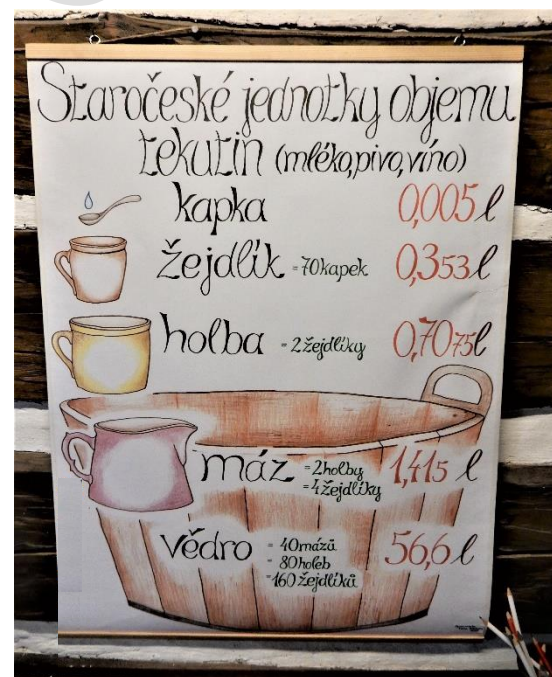 Staročeské jednotky objemu
tekutin (mléko,pivo,víno)
kapka 0,005 l
žejdlík = 70 kapek 0,353 l
holba = 2 žejdlíky 0,7075 l
máz = 2 holby 1,415 l
= 4 žejdlíky
vědro = 40 mázů 56,6 l
= 80 holeb
= 160 žejdlíků